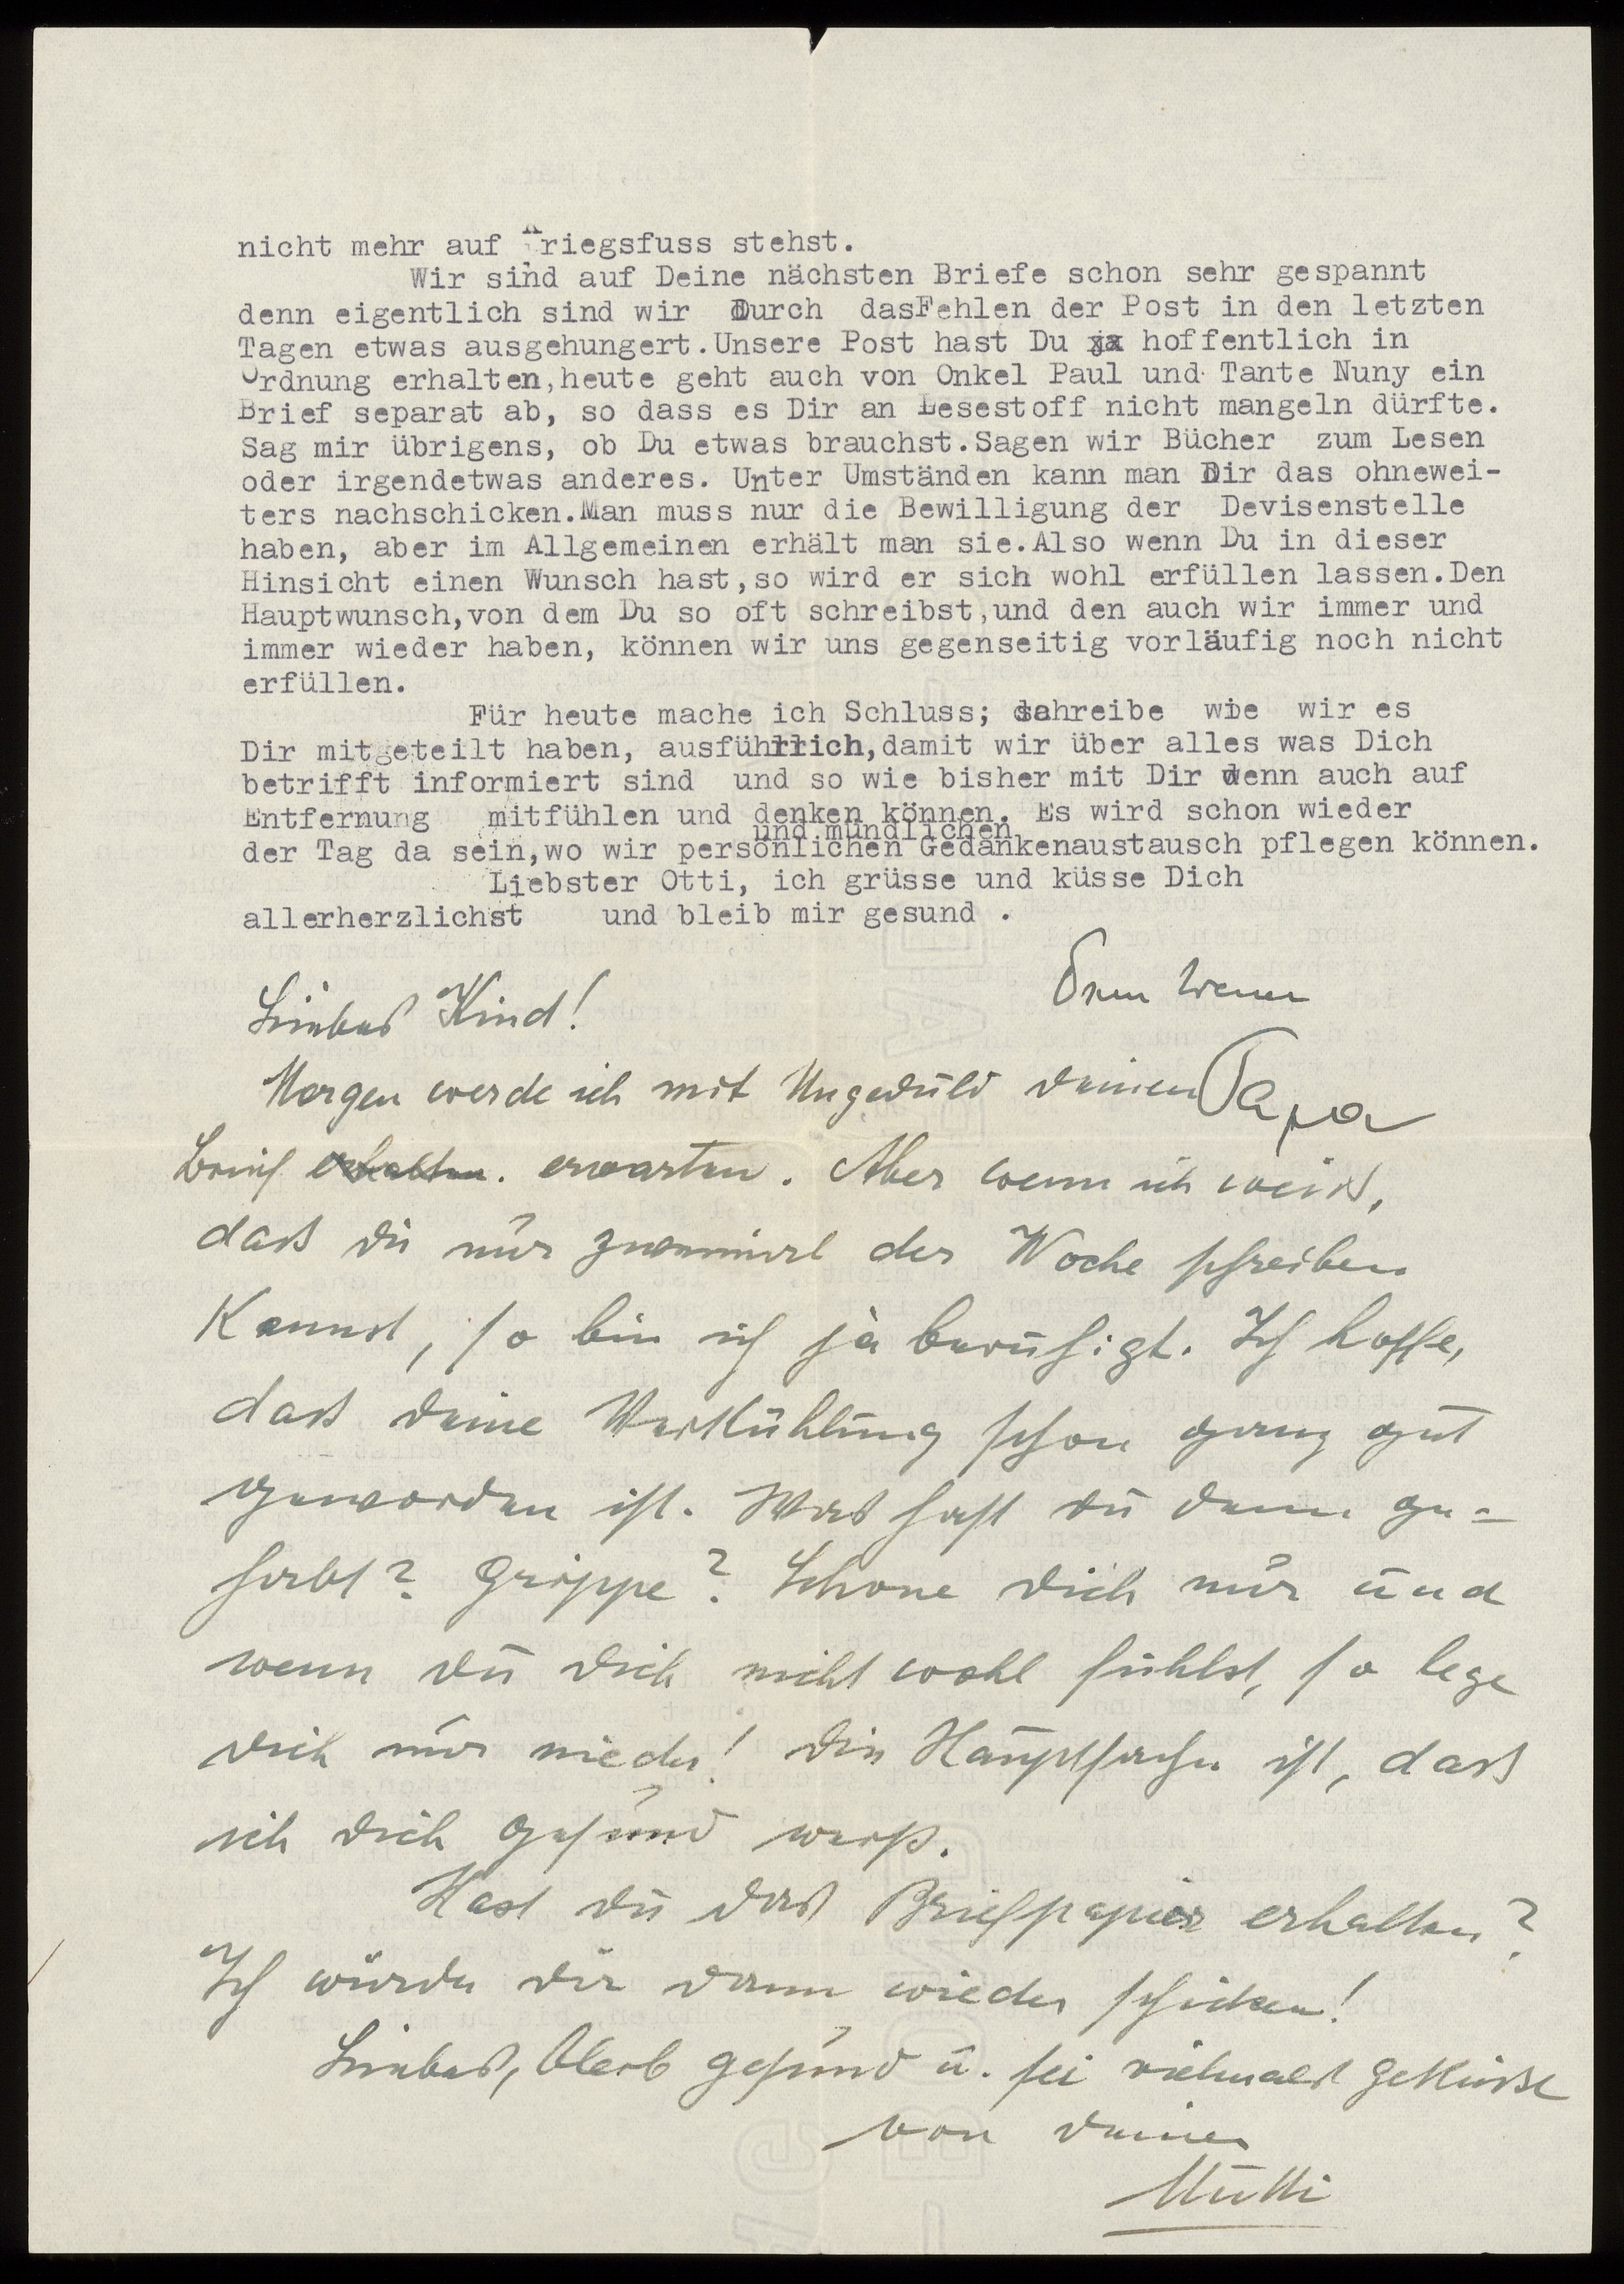 nicht mehr auf Kriegsfuss stehst.
Wir sind auf Deine nächsten Briefe schon sehr gespannt
denn eigentlich sind wir Durch dasFehlen der Post in den letzten
Tagen etwas ausgehungert.Unsere Post hast Du ja hoffentlich in
Ordnung erhalten,heute geht auch von Onkel Paul und Tante Nuny ein
Brief separat ab, so dass es Dir an Lesestoff nicht mangeln dürfte.
Sag mir übrigens, ob Du etwas brauchst.Sagen wir Bücher zum Lesen
oder irgendetwas anderes. Unter Umständen kann man Dir das ohnewei-
ters nachschicken.Man muss nur die Bewilligung der Devisenstelle
haben, aber im Allgemeinen erhält man sie.Also wenn Du in dieser
Hinsicht einen Wunsch hast,so wird er sich wohl erfüllen lassen.Den
Hauptwunsch,von dem Du so oft schreibst,und den auch wir immer und
immer wieder haben, können wir uns gegenseitig vorläufig noch nicht
erfüllen.
Für heute mache ich Schluss; schreibe wie wir es
Dir mitgeteilt haben, ausführlich,damit wir über alles was Dich
betrifft informiert sind und so wie bisher mit Dir wenn auch auf
Entfernung mitfühlen und denken können. Es wird schon wieder
und mündlichen
der Tag da sein,wo wir persönlichen Gedankenaustausch pflegen können.
Liebster Otti, ich grüsse und küsse Dich
allerherzlichst und bleib mir gesund .
Liebes Kind!
Papa
Morgen werde ich mit Ungeduld deinen
Brief erhalten. erwarten. Aber wenn ich weiss,
dass du nur zweimal der Woche schreiben
Kannst, so bin ich ja beruhigt. Ich hoffe,
dass deine Verkühlung schon ganz gut
geworden ist. Was hast du denn ge=
habt? Grippe? Schone dich nur und
wenn du dich nicht wohl fühlst, so lege
dich nur nieder! Die Hauptsache ist, dass
ich dich gesund weiß.
Hast du das Briefpapier erhalten?
Ich würde dir dann wieder schicken!
Liebes, bleib gesund u. sei vielmals geküsst
von deiner
Mutti